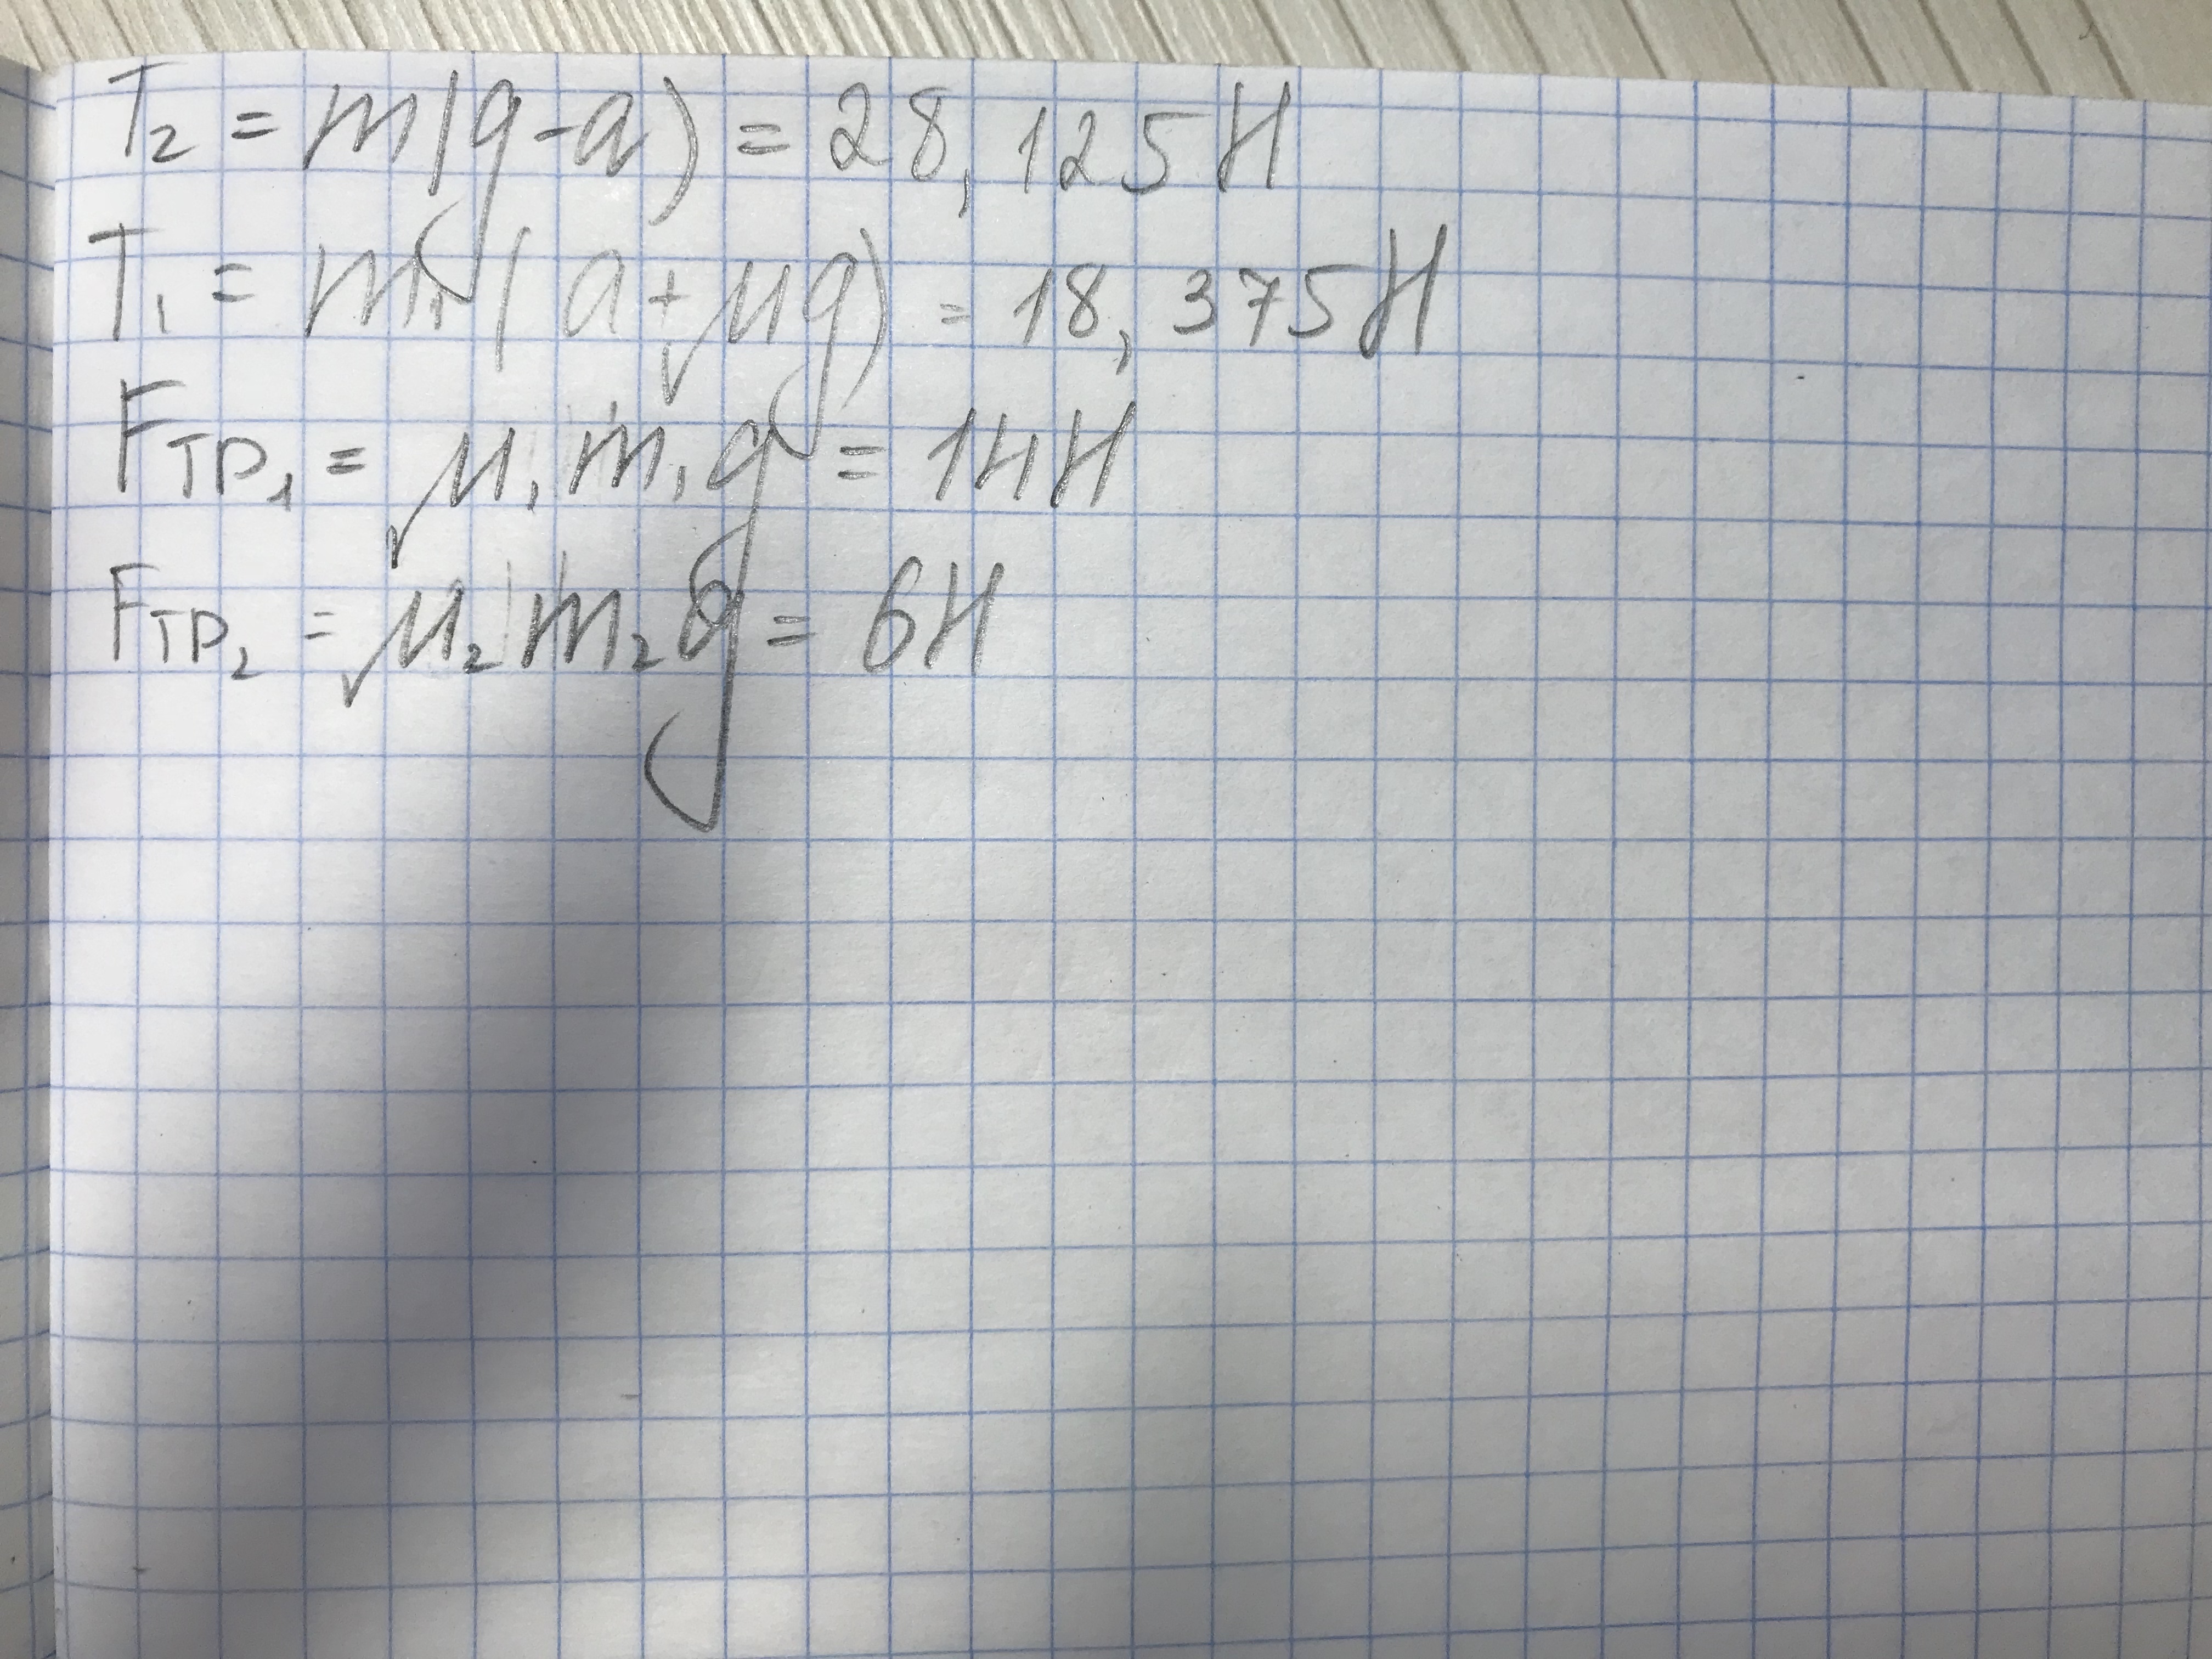 T₂ = m(g-a) = 28,125 Н
T₁ = m₁(a+μg) = 18,375 Н
Fтр₁ = μ₁m₁g = 14 Н
Fтр₂ = μ₂m₂g = 6 Н